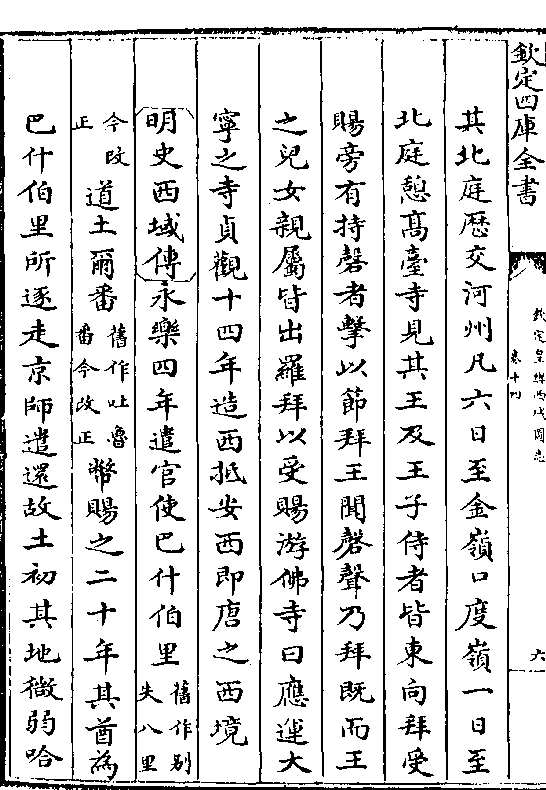 欽定四庫全書
欽定皇輿西域圖志
卷十四
六
其北庭歴交河州凡六日至金嶺口度嶺一日至
北庭憩髙臺寺見其王及王子侍者皆東向拜受
賜旁有持磬者擊以節拜王聞磬聲乃拜既而王
之兒女親屬皆出羅拜以受賜游佛寺曰應運大
寧之寺貞觀十四年造西抵安西即唐之西境
明史西域傳永樂四年遣官使巴什伯里舊作别失八里
今改正道土爾番舊作吐魯番今改正幣賜之二十年其酋為
巴什伯里所逐走京師遣還故土初其地㣲弱哈